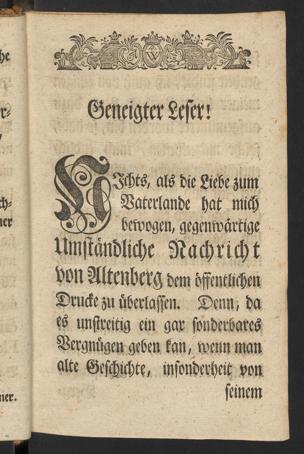 Geneigter Leser!
NIchts, als die Liebe zum
Vaterlande hat mich
bewogen, gegenwärtige
Umständliche Nachricht
von Altenberg dem öffentlichen
Drucke zu überlassen. Denn, da
es unstreitig ein gar sonderbares
Vergnügen geben kan, wenn man
alte Geschichte, insonderheit von
seinem